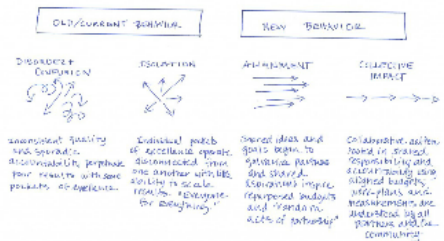 OLD/CURRENT BEHAVIOR
NEW BEHAVIOR
DISORDER +
CONFUSION
ISOLATION
ALIGNMENT
COLLECTIVE
IMPACT
Inconsistent quality
and sporadic
accountability perpetuate
poor results with some
pockets of excellence.
Individual pockets
of excellence operate
disconnected from
one another with little
ability to scale
results. "Everyone
for everything."
Shared ideas and
goals begin to
galvanize partners
and shared
aspirations inspire
repurposed budgets
and "random
acts of partnership"
Collaborative action
rooted in shared
responsibility and
accountability using
aligned budgets,
work-plans and
measurements are
understood by all
partners and the
community.